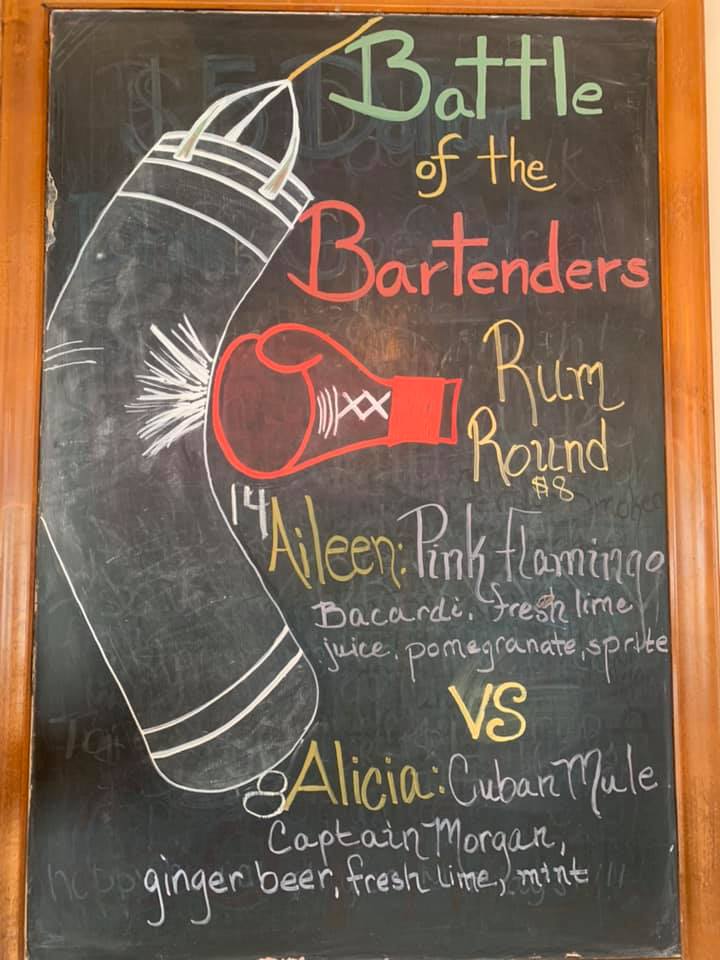 Battle
of the
Bartenders
Rum
Round
$8
14 Aileen: Pink Flamingo
Bacardi, fresh lime
juice, pomegranate, sprite
VS
8 Alicia: Cuban Mule
Captain Morgan,
ginger beer, fresh lime, mint